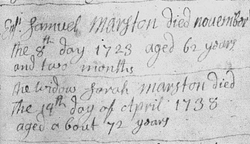 Samuel Marston died november
the 8th day 1728 aged 62 years
and two months
the widow Sarah marston died
the 19th day of April 1738
aged a bout 72 years